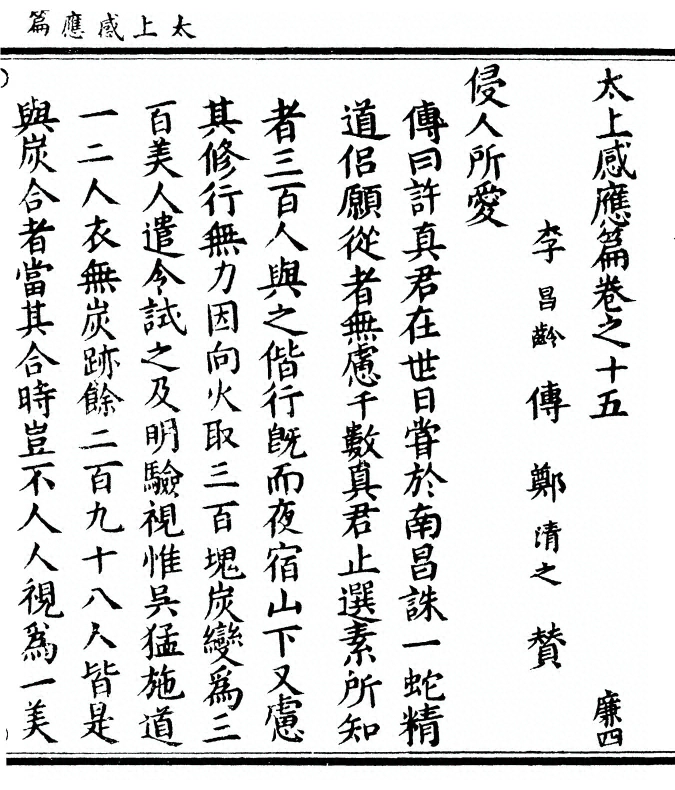 太上感應篇
太上感應篇卷之十五
廉四
李昌齡傳 鄭清之贊
侵人所愛
傳曰許真君在世日嘗於南昌誅一蛇精
道侶願從者無慮千數真君止選素所知
者三百人與之偕行旣而夜宿山下又慮
其修行無力因向火取三百塊炭變爲三
百美人遣令試之及明驗視惟吳猛施道
一二人衣無炭跡餘二百九十八人皆是
與炭合者當其合時豈不人人視爲一美